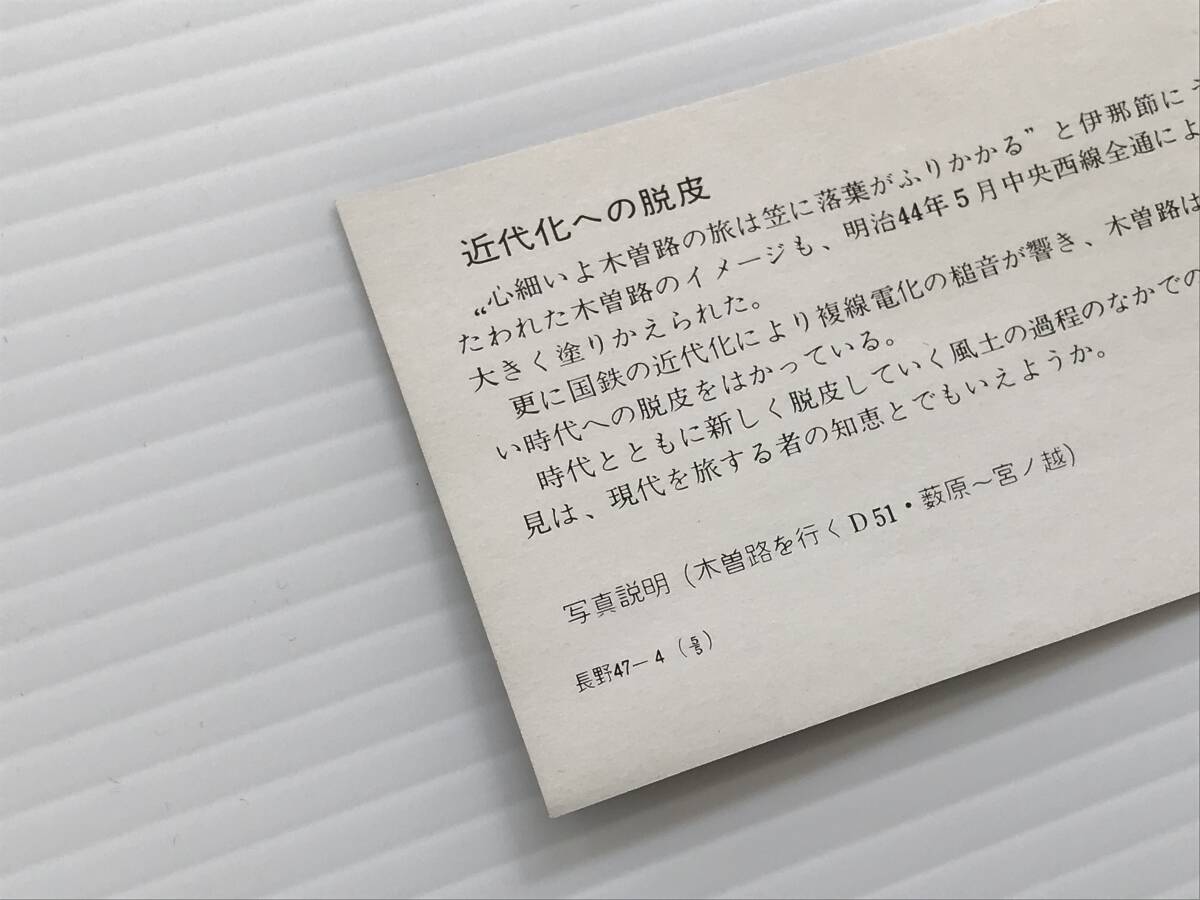 近代化への脱皮
“心細いよ木曽路の旅は笠に落葉がふりかかる”と伊那節に
たわれた木曽路のイメージも、明治44年5月中央西線全通によ
大きく塗りかえられた。
更に国鉄の近代化により複線電化の槌音が響き、木曽路は
い時代への脱皮をはかっている。
時代とともに新しく脱皮していく風土の過程のなかでの
見は、現代を旅する者の知恵とでもいえようか。
写真説明(木曽路を行くD51・薮原~宮ノ越)
長野47-4(5/5)